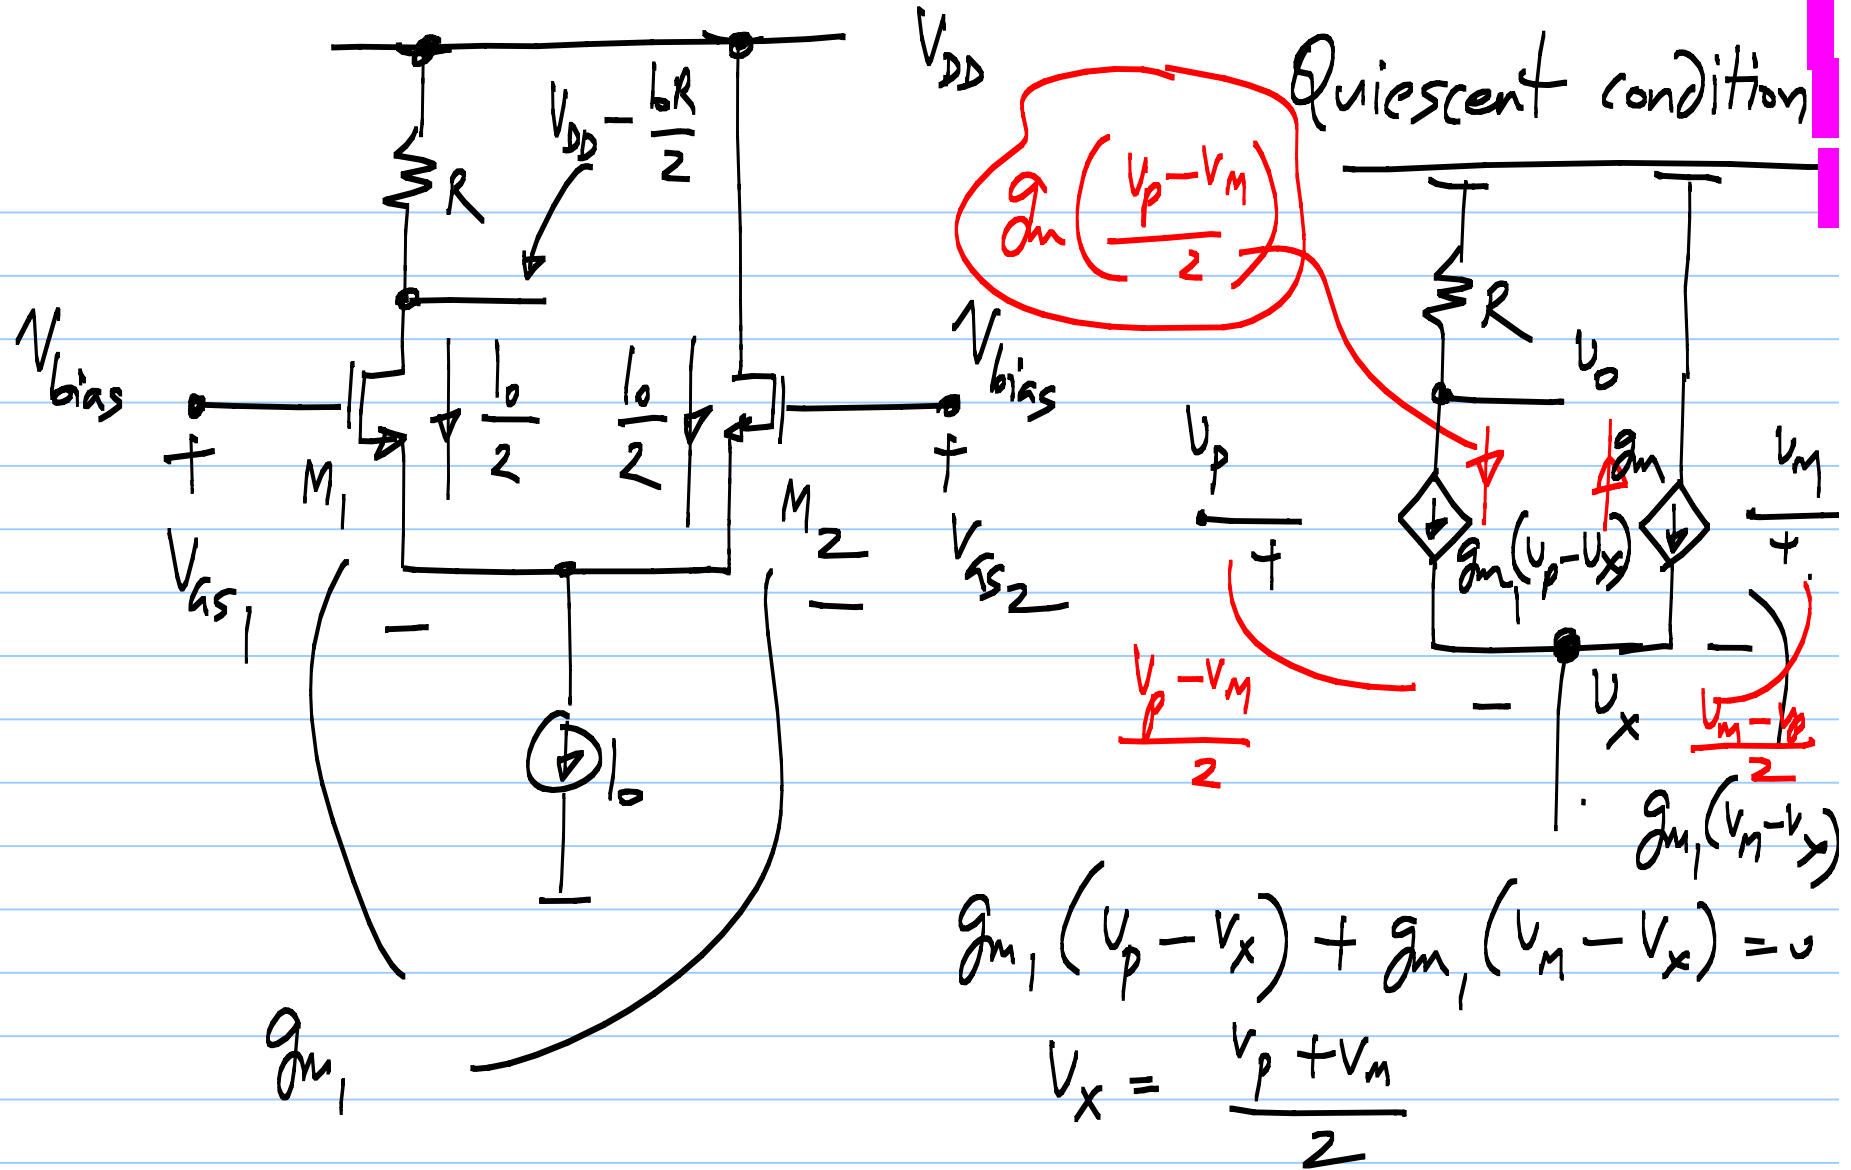 V_DD
Quiescent condition
V_DD - I_0R/2
R
V_bias
I_0/2
I_0/2
V_bias
+
M_1
V_GS_1
-
M_2
+
V_GS_2
-
I_0
g_m_1
g_m((v_p - v_m)/2)
R
v_o
v_p
+
g_m_1(v_p - v_x)
g_m
v_m
+
-
-
v_x
(v_p - v_m)/2
(v_m - v_p)/2
g_m_1(v_m - v_x)
g_m_1(v_p - v_x) + g_m_1(v_m - v_x) = 0
v_x = (v_p + v_m)/2